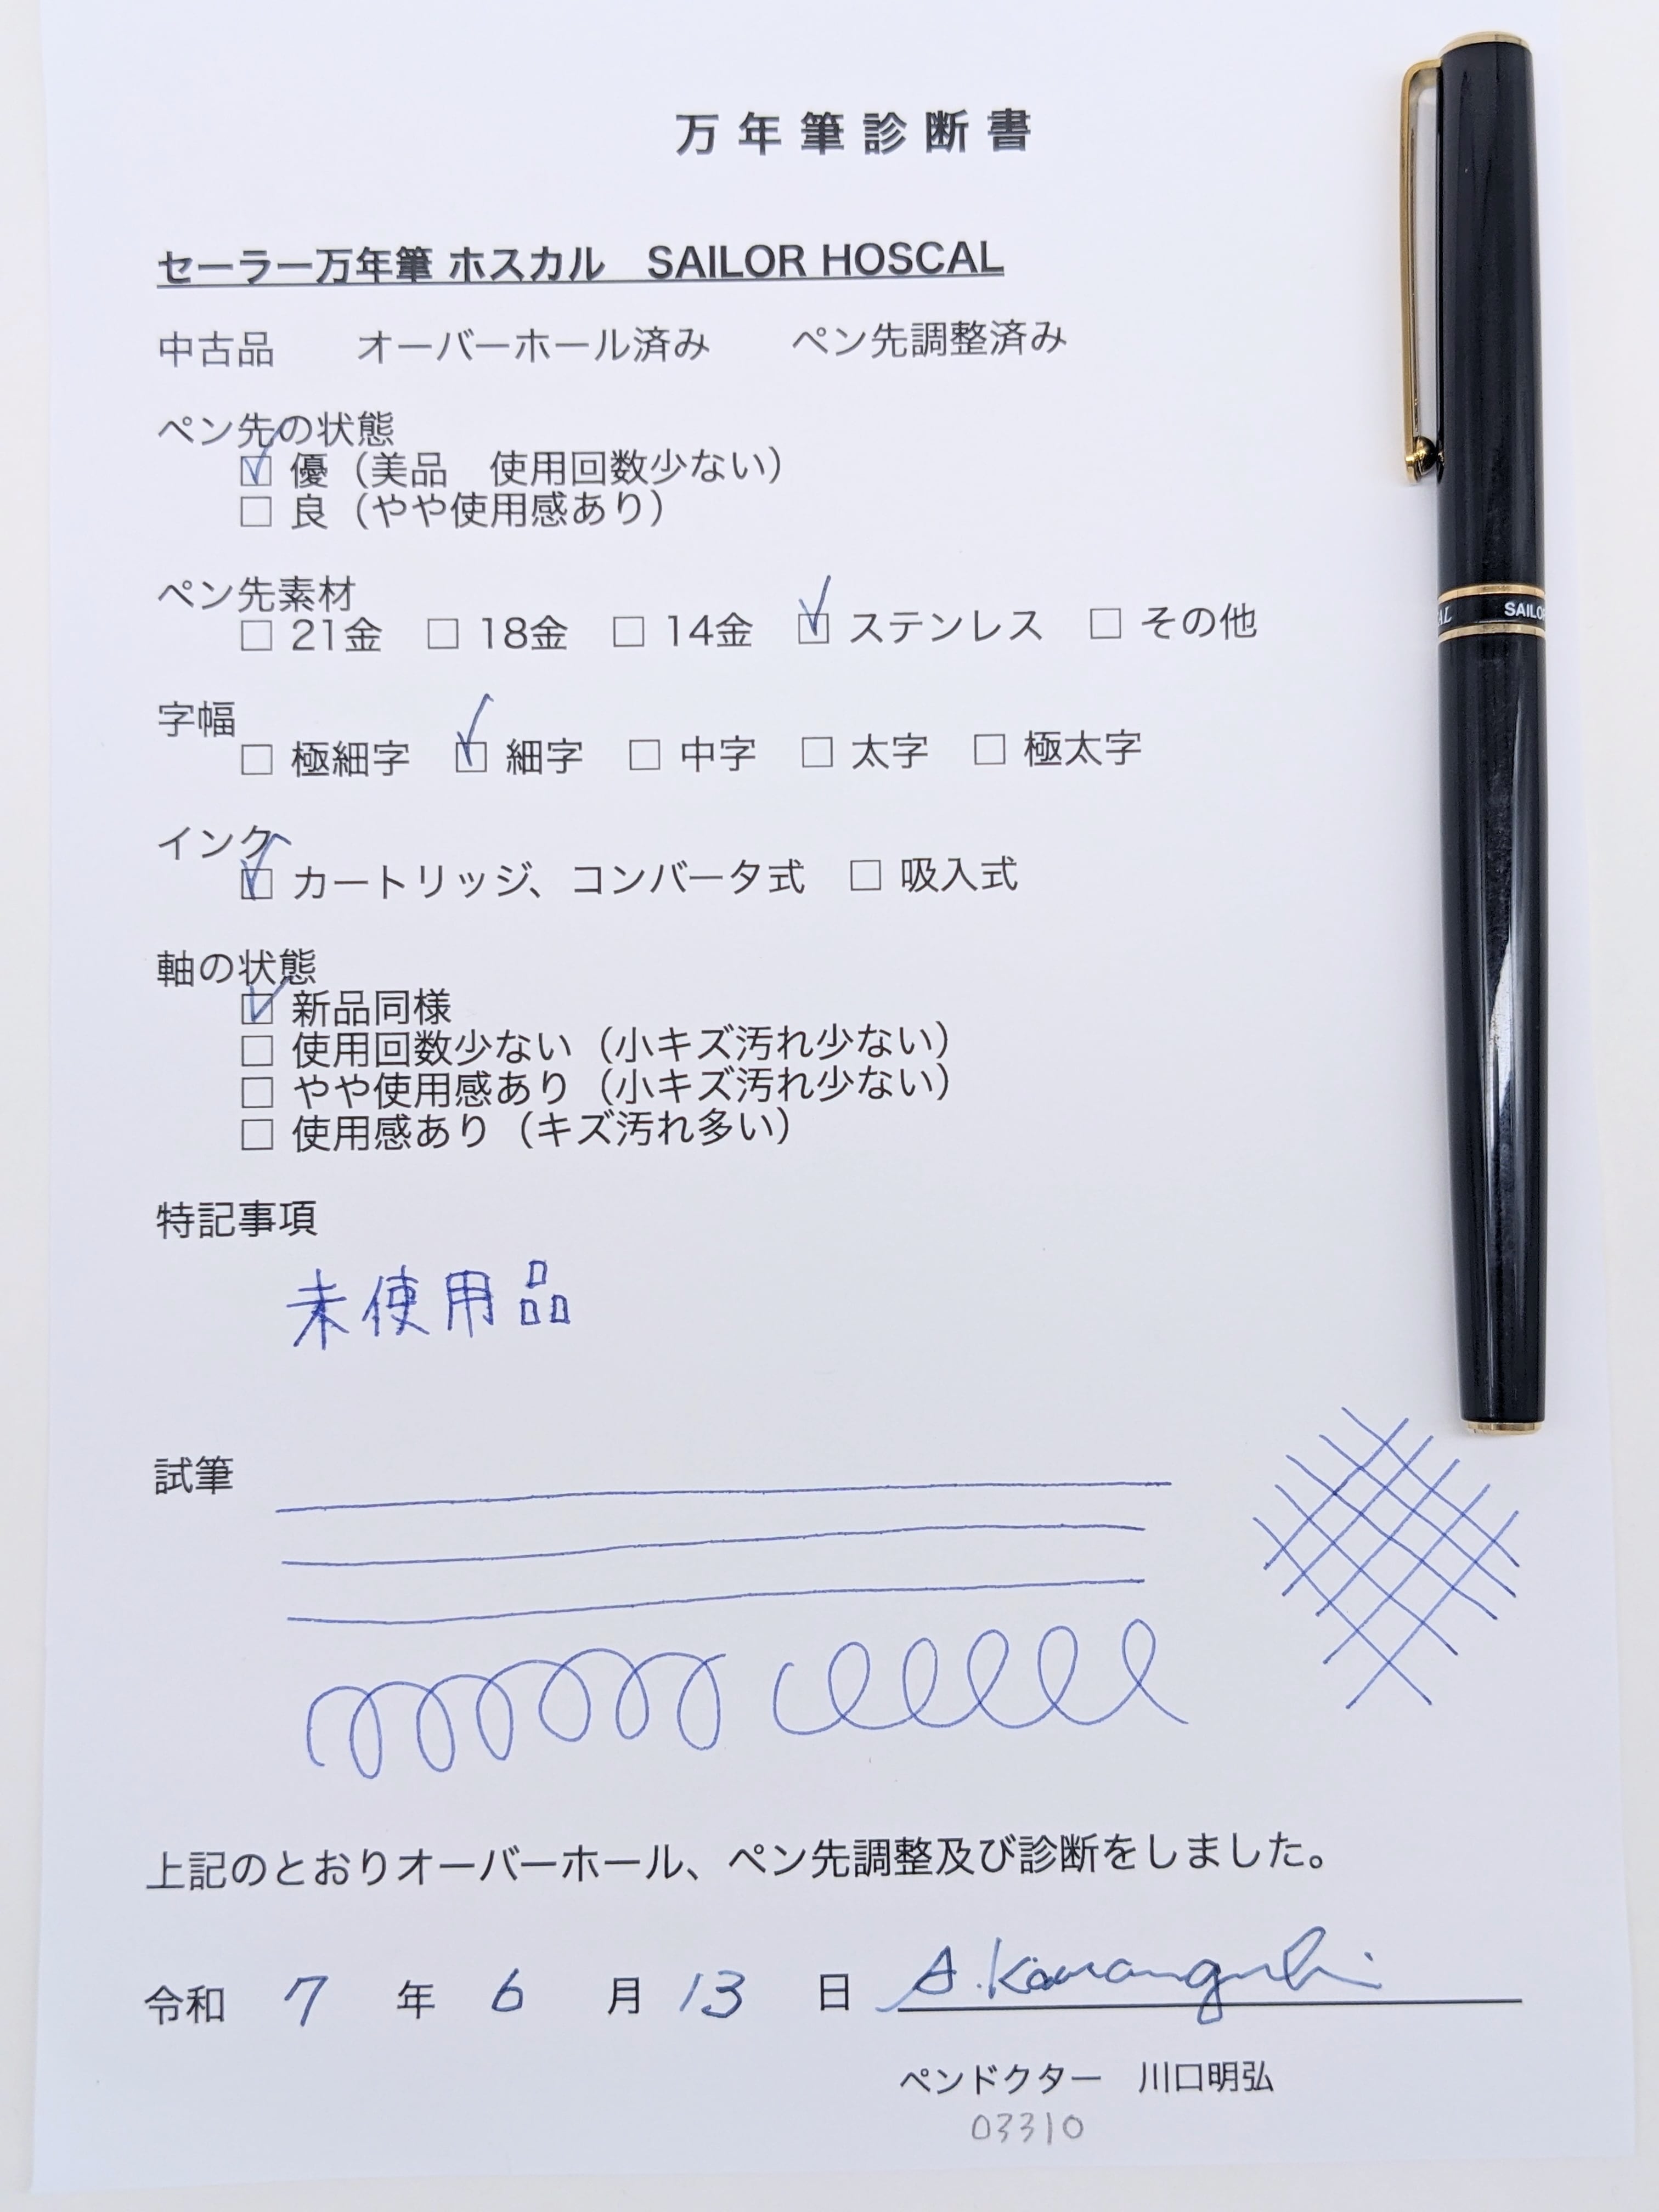 万年筆診断書
セーラー万年筆 ホスカル　SAILOR HOSCAL
中古品　　オーバーホール済み　　ペン先調整済み
ペン先の状態
☑ 優（美品　使用回数少ない）
□ 良（やや使用感あり）
ペン先素材
□ 21金　□ 18金　□ 14金　☑ ステンレス　□ その他
字幅
□ 極細字　☑ 細字　□ 中字　□ 太字　□ 極太字
インク
☑ カートリッジ、コンバータ式　□ 吸入式
軸の状態
☑ 新品同様
□ 使用回数少ない（小キズ汚れ少ない）
□ やや使用感あり（小キズ汚れ少ない）
□ 使用感あり（キズ汚れ多い）
特記事項
未使用品
試筆
上記のとおりオーバーホール、ペン先調整及び診断をしました。
令和 7 年 6 月 13 日 A.Kawaguchi
ペンドクター　川口明弘
03310
AL SAILO